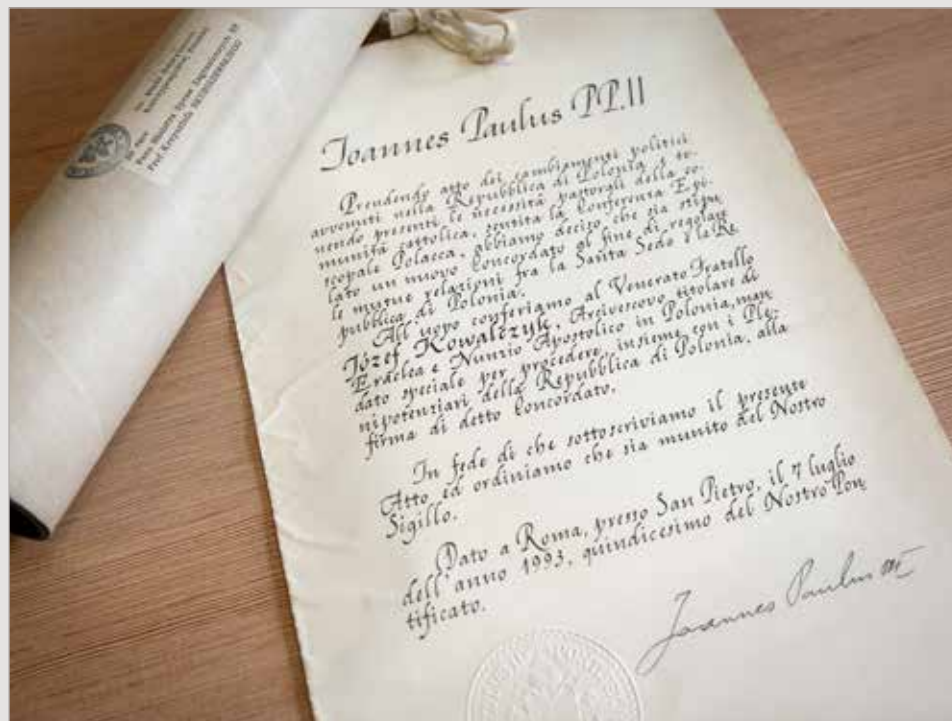 Joannes Paulus PP. II
Prendendo atto dei cambiamenti politici
avvenuti nella Repubblica di Polonia e te
nendo presenti le necessità pastorali della co
munità cattolica, sentita la Conferenza Epi
scopale Polacca, abbiamo deciso che sia stipu
lato un nuovo Concordato al fine di regolare
le mutue relazioni fra la Santa Sede e la Re
pubblica di Polonia.
All'uopo conferiamo al Venerato Fratello
Józef Kowalczyk, Arcivescovo titolare di
Eraclea e Nunzio Apostolico in Polonia, man
dato speciale per procedere, insieme con i Ple
nipotenziari della Repubblica di Polonia, alla
firma di detto Concordato.
In fede di che sottoscriviamo il presente
Atto ed ordiniamo che sia munito del Nostro
Sigillo.
Dato a Roma, presso San Pietro, il 7 luglio
dell'anno 1993, quindicesimo del Nostro Pon
tificato.
Joannes Paulus II
Pana Ministra Spraw Zagranicznych RP
Prof. Krzysztofa SKUBISZEWSKIEGO